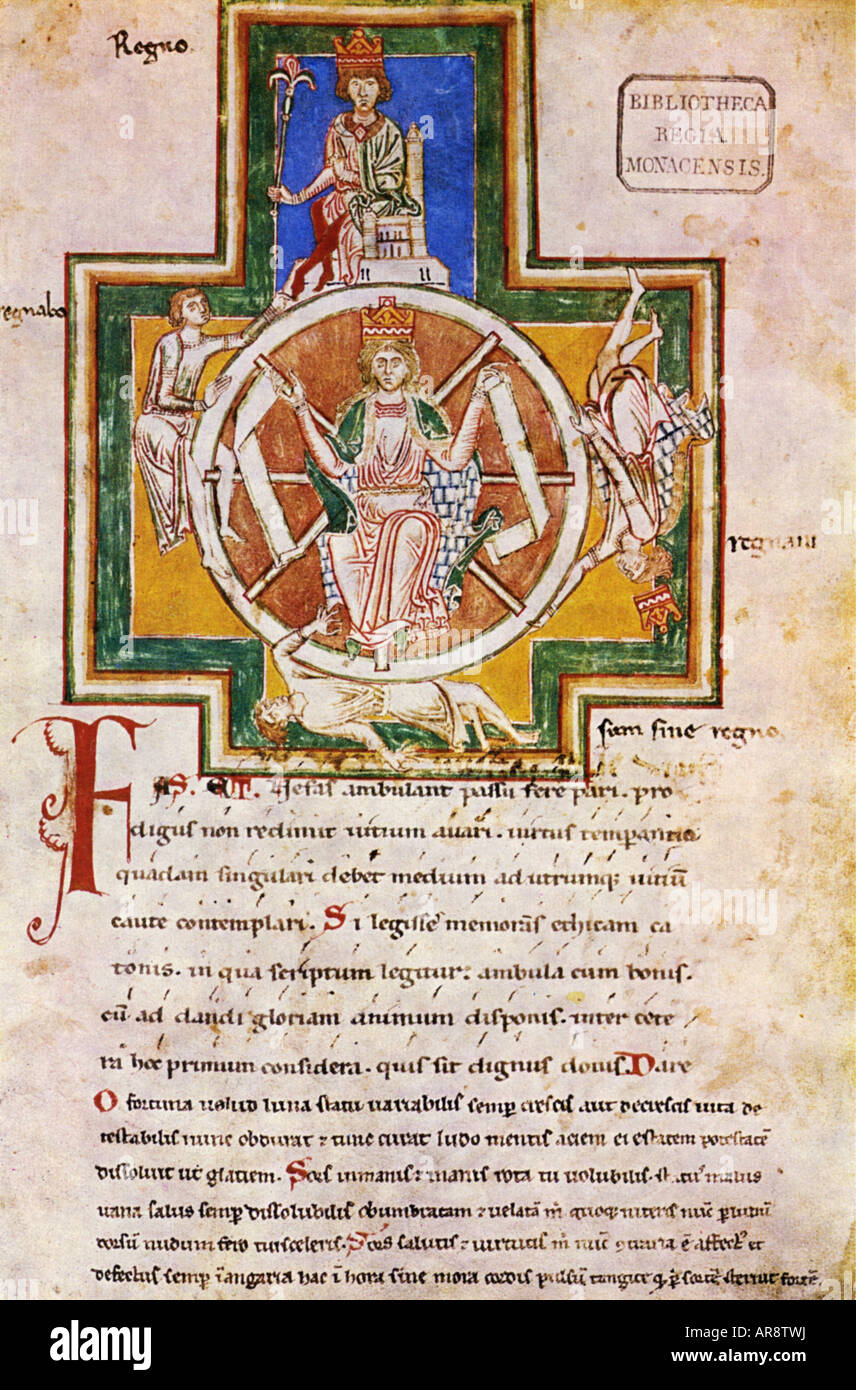 Regno
BIBLIOTHECA
REGIA
MONACENSIS.
regnabo
regnavi
sum sine regno
FAS. ET. Nefas ambulant passu fere pari. pro
digus non redimit vitium avari. virtus temperantia
quadam singulari debet medium ad utrumq; vitiū
caute contemplari. Si legisse memoras ethicam ca
tonis. in qua scriptum legitur: ambula cum bonis.
cū ad dandi gloriam animum disponis. inter cete
ra hoc primum considera. quis sit dignus donis. Dare
O fortuna velud luna statu variabilis semp crescis aut decrescis vita de
testabilis nunc obdurat & tunc curat ludo mentis aciem egestatem potestatē
dissolvit ut glaciem. Sors inmanis & inanis rota tu volubilis. status malus
vana salus semp dissolubilis obumbratam & velatā m quoq; niteris nūc p ludū
dorsū nudum fero tui sceleris. Sors salutis & virtutis m nūc ē affect et
defectus semp ī angaria hac ī hora sine mora cordis pulsū tangite
alamy
Image ID: AR8TWJ
www.alamy.com